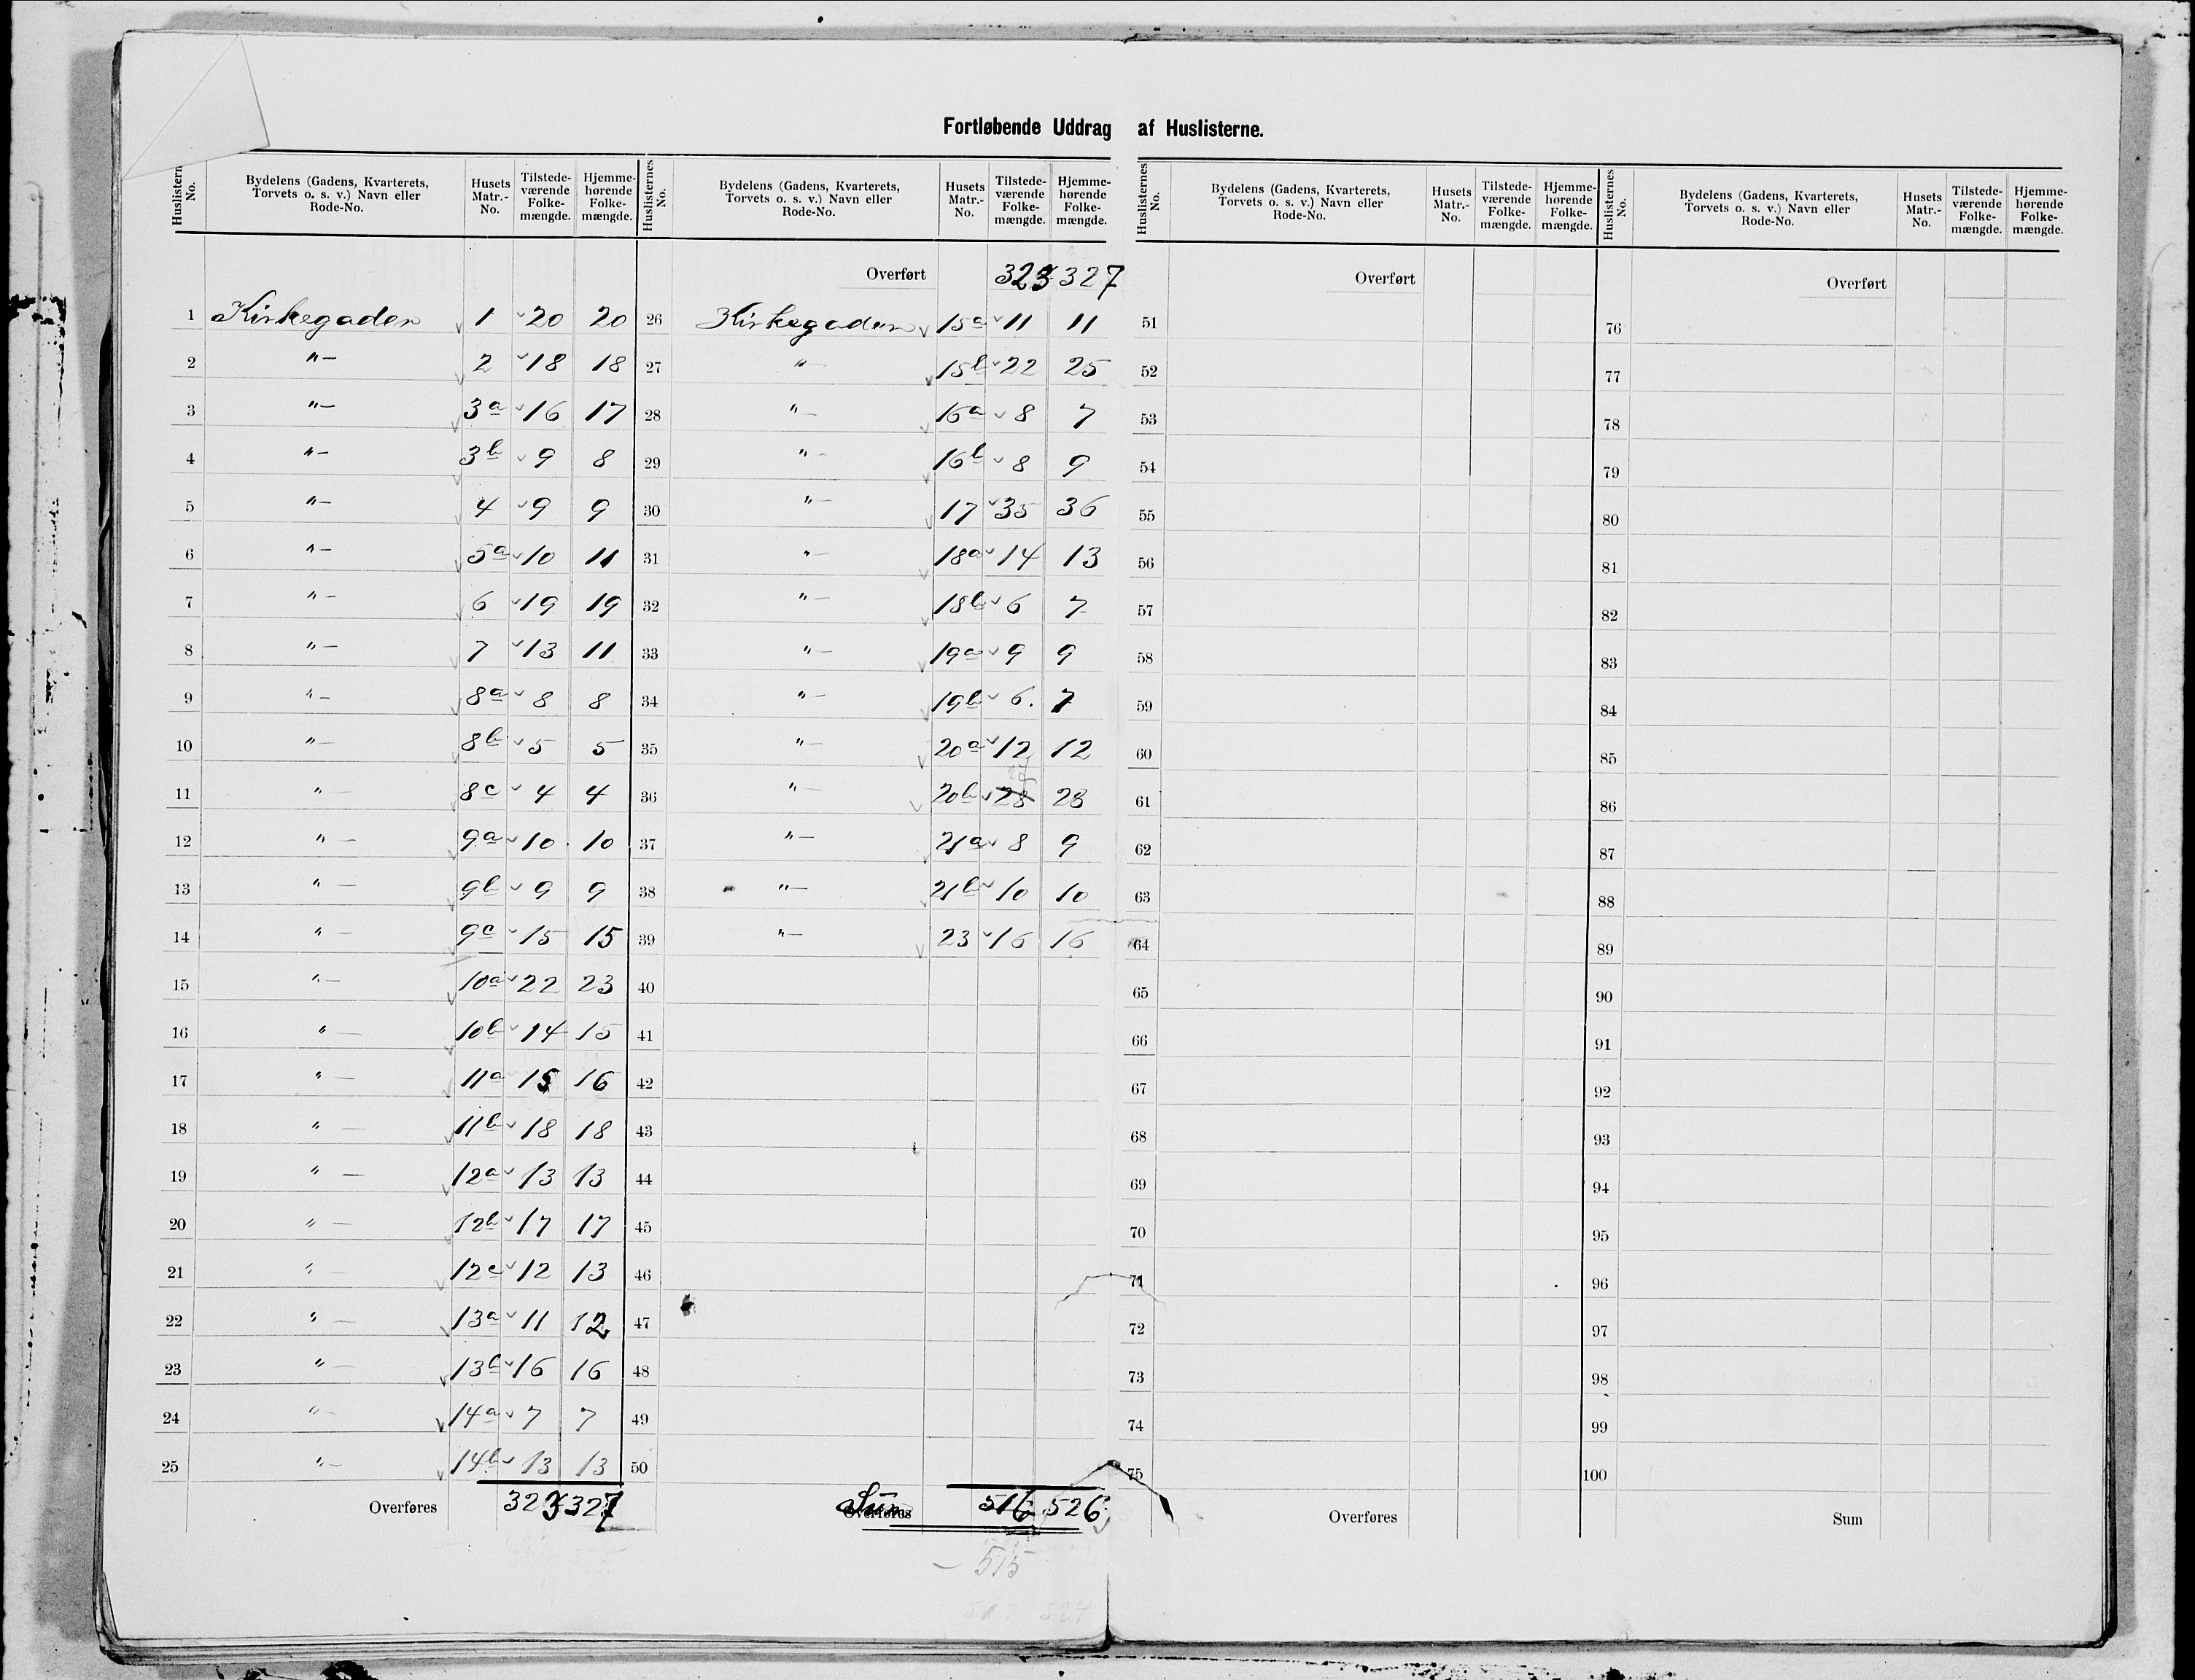 Fortløbende Uddrag af Huslisterne.
Huslistern No. | Bydelens (Gadens, Kvarterets, Torvets o. s. v.) Navn eller Rode-No. | Husets Matr.-No. | Tilstede-værende Folke-mængde. | Hjemme-hørende Folke-mængde.
1 Kirkegaden 1 20 20
2 "— 2 18 18
3 "— 3a 16 17
4 "— 3b 9 8
5 "— 4 9 9
6 "— 5a 10 11
7 "— 6 19 19
8 "— 7 13 11
9 "— 8a 8 8
10 "— 8b 5 5
11 "— 8c 4 4
12 "— 9a 10 10
13 "— 9b 9 9
14 "— 9c 15 15
15 "— 10a 22 23
16 "— 10b 14 15
17 "— 11a 15 16
18 "— 11b 18 18
19 "— 12a 13 13
20 "— 12b 17 17
21 "— 12c 12 13
22 "— 13a 11 12
23 "— 13b 16 16
24 "— 14a 7 7
25 "— 14b 13 13
Overføres 323 327
Huslisternes No. | Bydelens (Gadens, Kvarterets, Torvets o. s. v.) Navn eller Rode-No. | Husets Matr.-No. | Tilstede-værende Folke-mængde. | Hjemme-hørende Folke-mængde.
Overført 323 327
26 Kirkegaden 15a 11 11
27 "— 15b 22 25
28 "— 16a 8 7
29 "— 16b 8 9
30 "— 17 35 36
31 "— 18a 14 13
32 "— 18b 6 7
33 "— 19a 9 9
34 "— 19b 6. 7
35 "— 20a 12 12
36 "— 20b 28 28
37 "— 21a 8 9
38 "— 21b 10 10
39 "— 23 16 16
40
41
42
43
44
45
46
47
48
49
50
Overføres Sum 516 526
— 515
524
Huslisternes No. | Bydelens (Gadens, Kvarterets, Torvets o. s. v.) Navn eller Rode-No. | Husets Matr.-No. | Tilstede-værende Folke-mængde. | Hjemme-hørende Folke-mængde.
Overført
51
52
53
54
55
56
57
58
59
60
61
62
63
64
65
66
67
68
69
70
71
72
73
74
75
Overføres
Huslisternes No. | Bydelens (Gadens, Kvarterets, Torvets o. s. v.) Navn eller Rode-No. | Husets Matr.-No. | Tilstede-værende Folke-mængde. | Hjemme-hørende Folke-mængde.
Overført
76
77
78
79
80
81
82
83
84
85
86
87
88
89
90
91
92
93
94
95
96
97
98
99
100
Sum